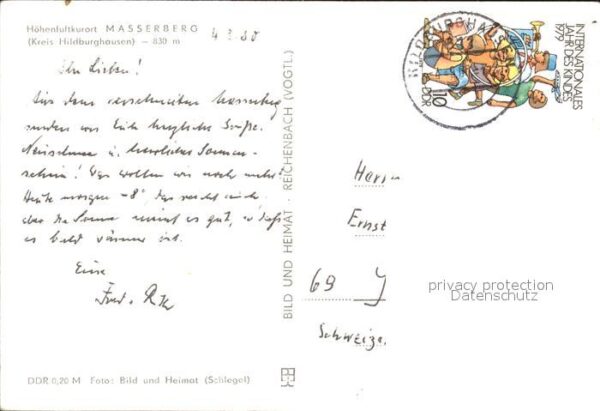 Höhenluftkurort MASSERBERG
(Kreis Hildburghausen) – 830 m
4.3.80
Ihr Lieben!
Aus dem verschneiten Masserberg
senden wir Euch herzliche Grüße.
Neuschnee u. herrlicher Sonnen-
schein! Was wollen wir noch mehr?
Heute morgen -8°, das macht nichts
aber die Sonne meint es gut, so daß
es bald wärmer ist.
Eure
BILD UND HEIMAT · REICHENBACH (VOGTL.)
DDR 0,20 M Foto: Bild und Heimat (Schlegel)
INTERNATIONALES
JAHR DES KINDES
1979
10
DDR
Herrn
Ernst
69
Schweiz.
privacy protection
Datenschutz